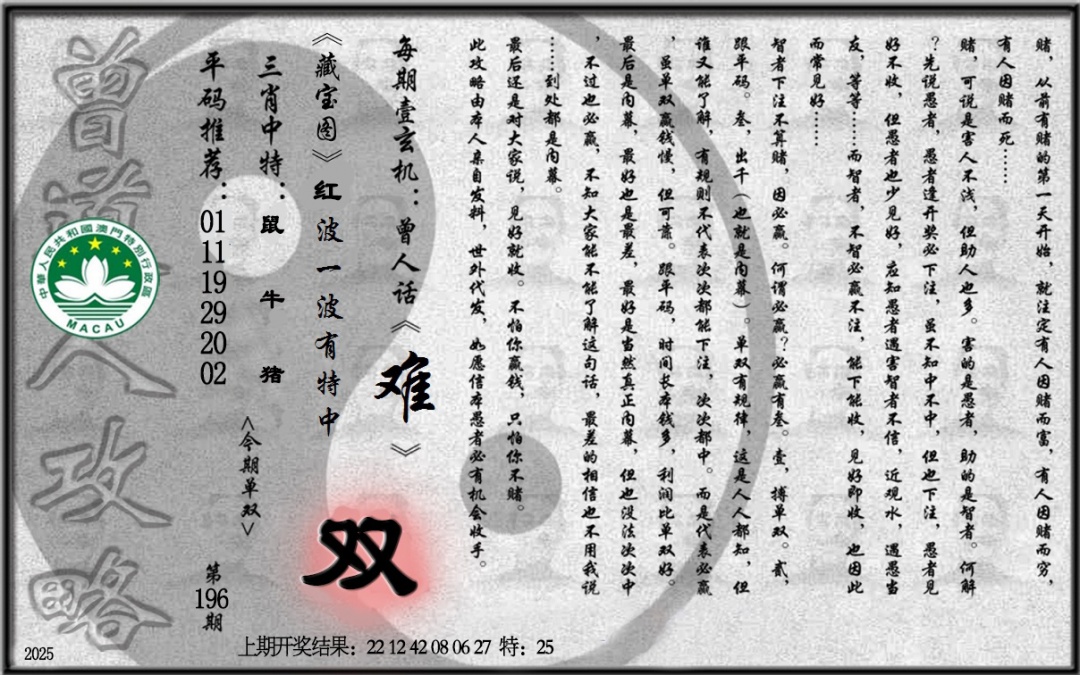 赌，从前有赌的第一天开始，就注定有人因赌而富，有人因赌而穷，
有人因赌而死……
赌，可说是害人不浅，但助人也多。害的是愚者，助的是智者。何解
？先说愚者，愚者逢开奖必下注，虽不知中不中，但也下注，愚者见
好不收，但愚者也少见好，应知愚者遇害智者不信，近观水，遇愚当
友，等等……而智者，不智必赢不注，能下能收，见好即收，也因此
而常见好……
智者下注不算赌，因必赢。何谓必赢？必赢有叁。壹，搏单双。贰，
跟平码。叁，出千（也就是内幕）。单双有规律，这是人人都知，但
谁又能了解，有规则不代表次次都能下注，次次都中。而是代表必赢
，虽单双赢钱慢，但可靠。跟平码，时间长本钱多，利润比单双好。
最后是内幕，最好也是最差，最好是当然真正内幕，但也没法次次中
，不过也必赢，不知大家能不能了解这句话，最差的相信也不用我说
……到处都是内幕。
最后还是对大家说，见好就收。不怕你赢钱，只怕你不赌。
此攻略由本人亲自发料，世外代发，如愿信本愚者必有机会收手。
每期壹玄机：曾人话《难》
《藏宝图》红波一波有特中
双
三肖中特：鼠 牛 猪
<今期单双>
平码推荐：01 11 19 29 20 02
第196期
曾道人攻略
中華人民共和國澳門特別行政區
MACAU
上期开奖结果：22 12 42 08 06 27 特：25
2025